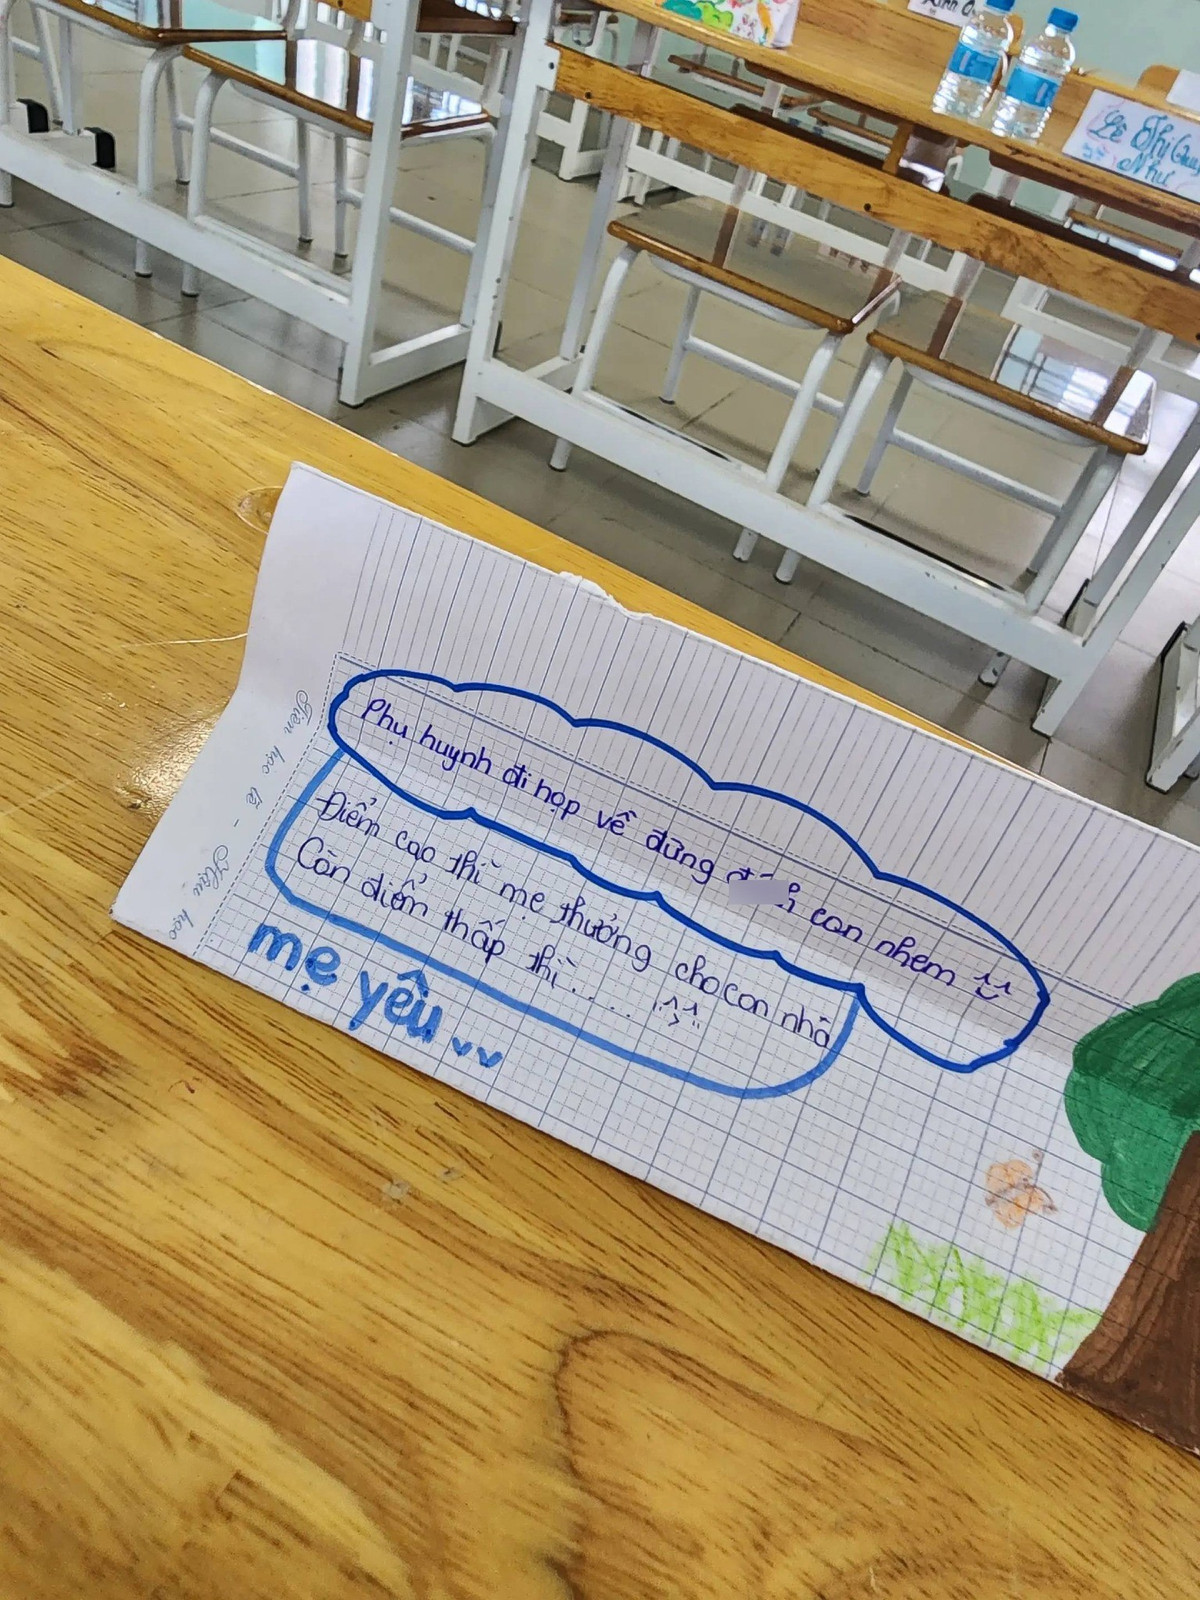 Lê Thị Quỳnh
Như
Tiên học lễ - Hậu học
Phụ huynh đi họp về đừng con nhem
Điểm cao thì mẹ thưởng cho con nhá
Còn điểm thấp thì.....
mẹ yêu